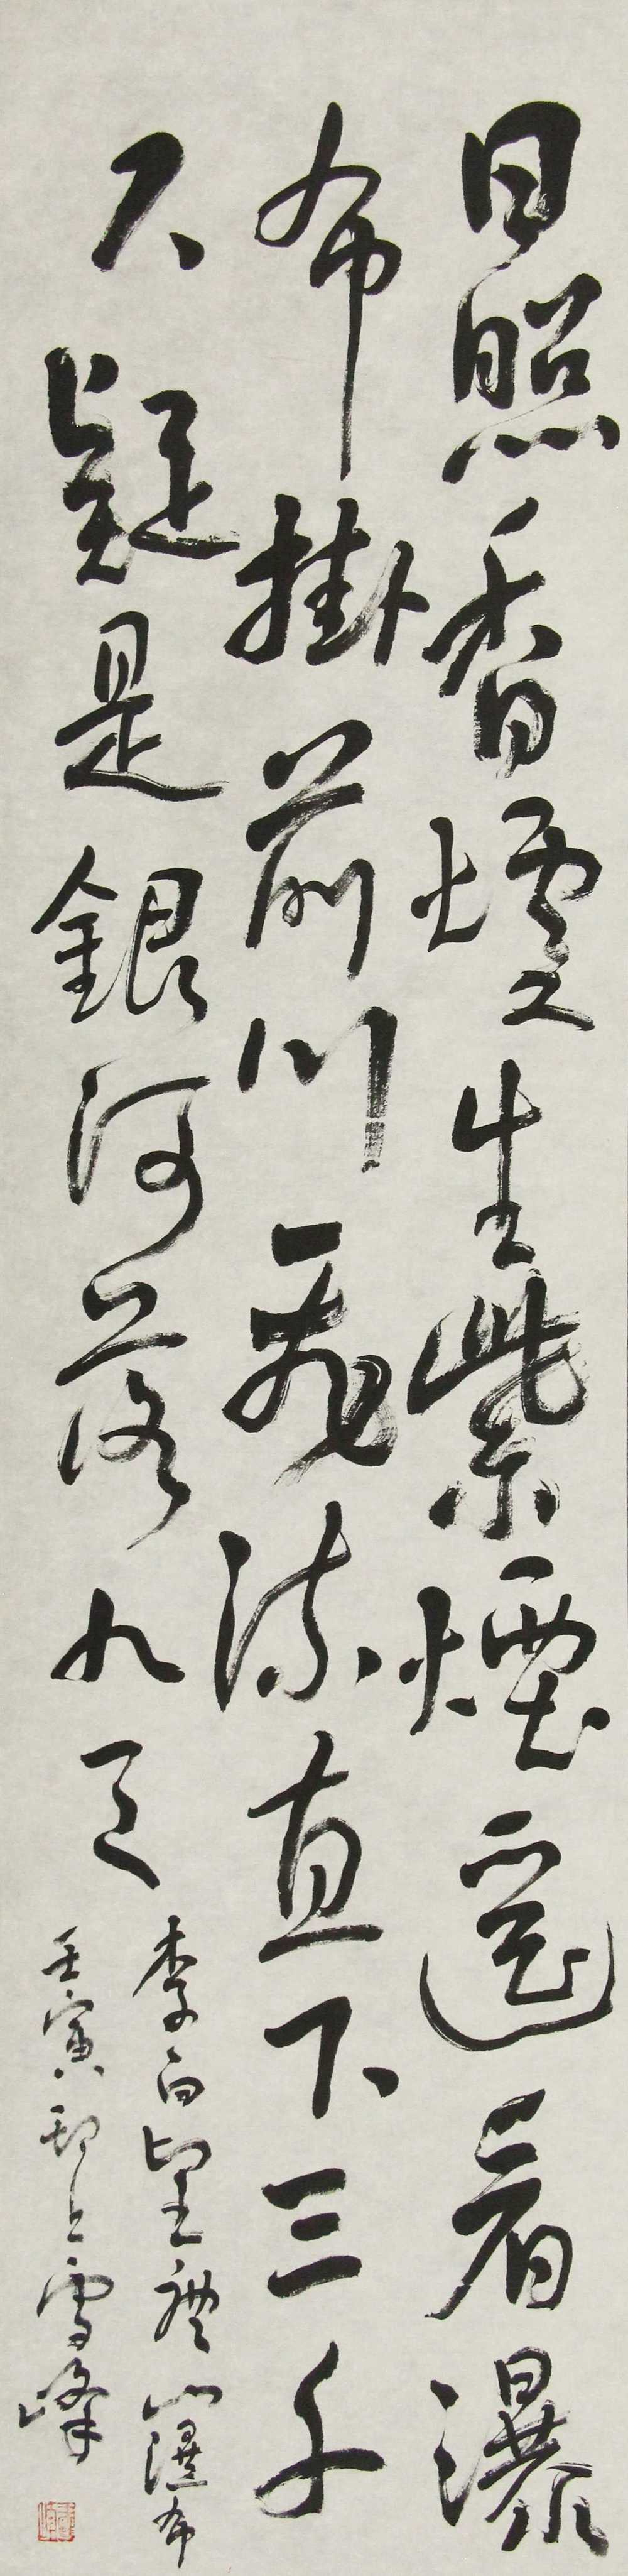 日照香爐生紫煙遥看瀑
布掛前川飛流直下三千
尺疑是銀河落九天
李白望廬山瀑布
壬寅邗上雪峰